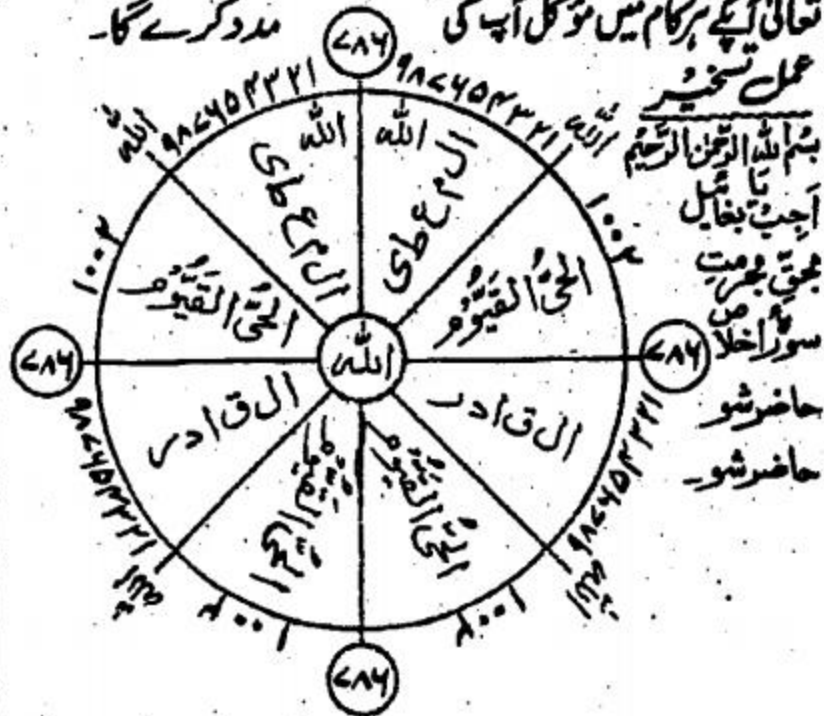 تعالیٰ آپکے ہر کام میں مؤکل آپ کی مدد کرے گا۔
عمل تسخیر
بسم اللہ الرحمٰن الرحیم
اَجِبْ یَا
بحقِّ بحرمتِ
سورۂ اخلاص
حاضر شو
حاضر شو۔
۷۸۶
۱ ۲ ۳ ۴ ۵ ۶ ۷ ۸ ۹
۱ ۲ ۳ ۴ ۵ ۶ ۷ ۸ ۹
اللہ
اللہ
اللہ
اللہ
ال م ع ط ی
ال م ع ط ی
۱۰۰۲
۱۰۰۲
الحیُّ القیُّوم
الحیُّ القیُّوم
۷۸۶
اللہ
۷۸۶
ال ق ا د ر
ال ق ا د ر
۱ ۲ ۳ ۴ ۵ ۶ ۷ ۸ ۹
۱ ۲ ۳ ۴ ۵ ۶ ۷ ۸ ۹
الحیُّ القیُّوم
الحیُّ القیُّوم
اللہ
اللہ
۱۰۰۲
۱۰۰۲
۷۸۶